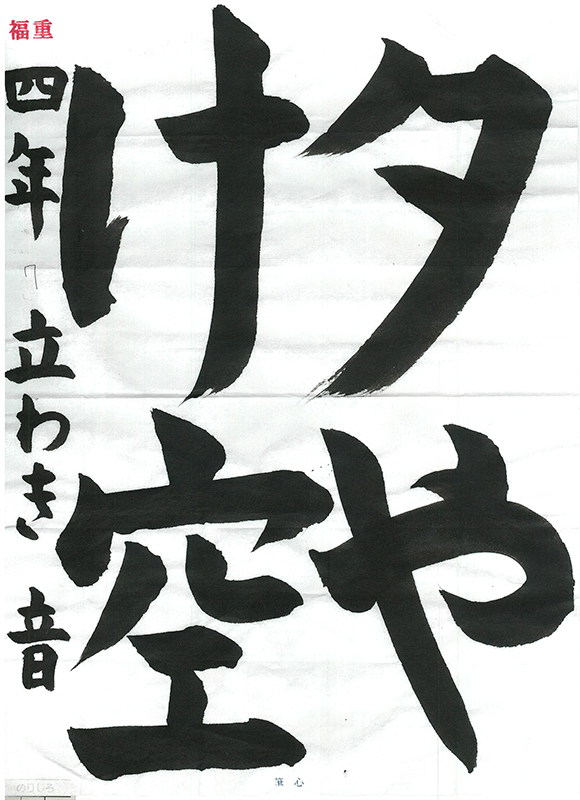 夕や
け空
四年 7 立わき 音
福重
心筆
のりしろ